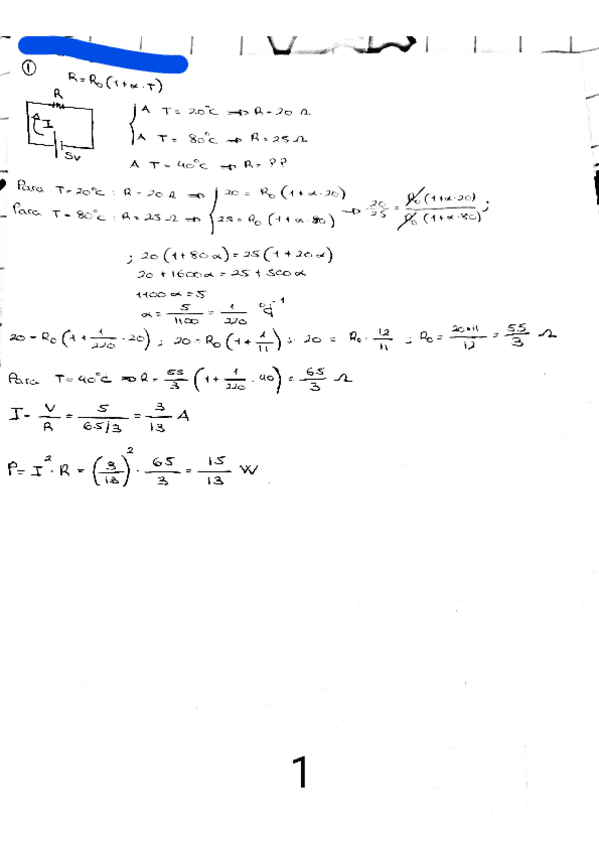 ①
R = R₀(1+α·T)
R
I
5V
A T = 20°C → R = 20 Ω
A T = 80°C → R = 25 Ω
A T = 40°C → R = ??
Para T = 20°C : R = 20 Ω ⇒ { 20 = R₀(1+α·20)
Para T = 80°C : R = 25 Ω ⇒ { 25 = R₀(1+α·80) → 20/25 = R₀(1+α·20)/R₀(1+α·80) ;
; 20(1+80α) = 25(1+20α)
20 + 1600α = 25 + 500α
1100α = 5
α = 5/1100 = 1/220 °C⁻¹
20 = R₀(1 + 1/220 · 20) ; 20 = R₀(1 + 1/11) ; 20 = R₀ · 12/11 ; R₀ = 20·11/12 = 55/3 Ω
Para T = 40°C ⇒ R = 55/3 (1 + 1/220 · 40) = 65/3 Ω
I = V/R = 5/65/3 = 3/13 A
P = I² · R = (3/13)² · 65/3 = 15/13 W
1